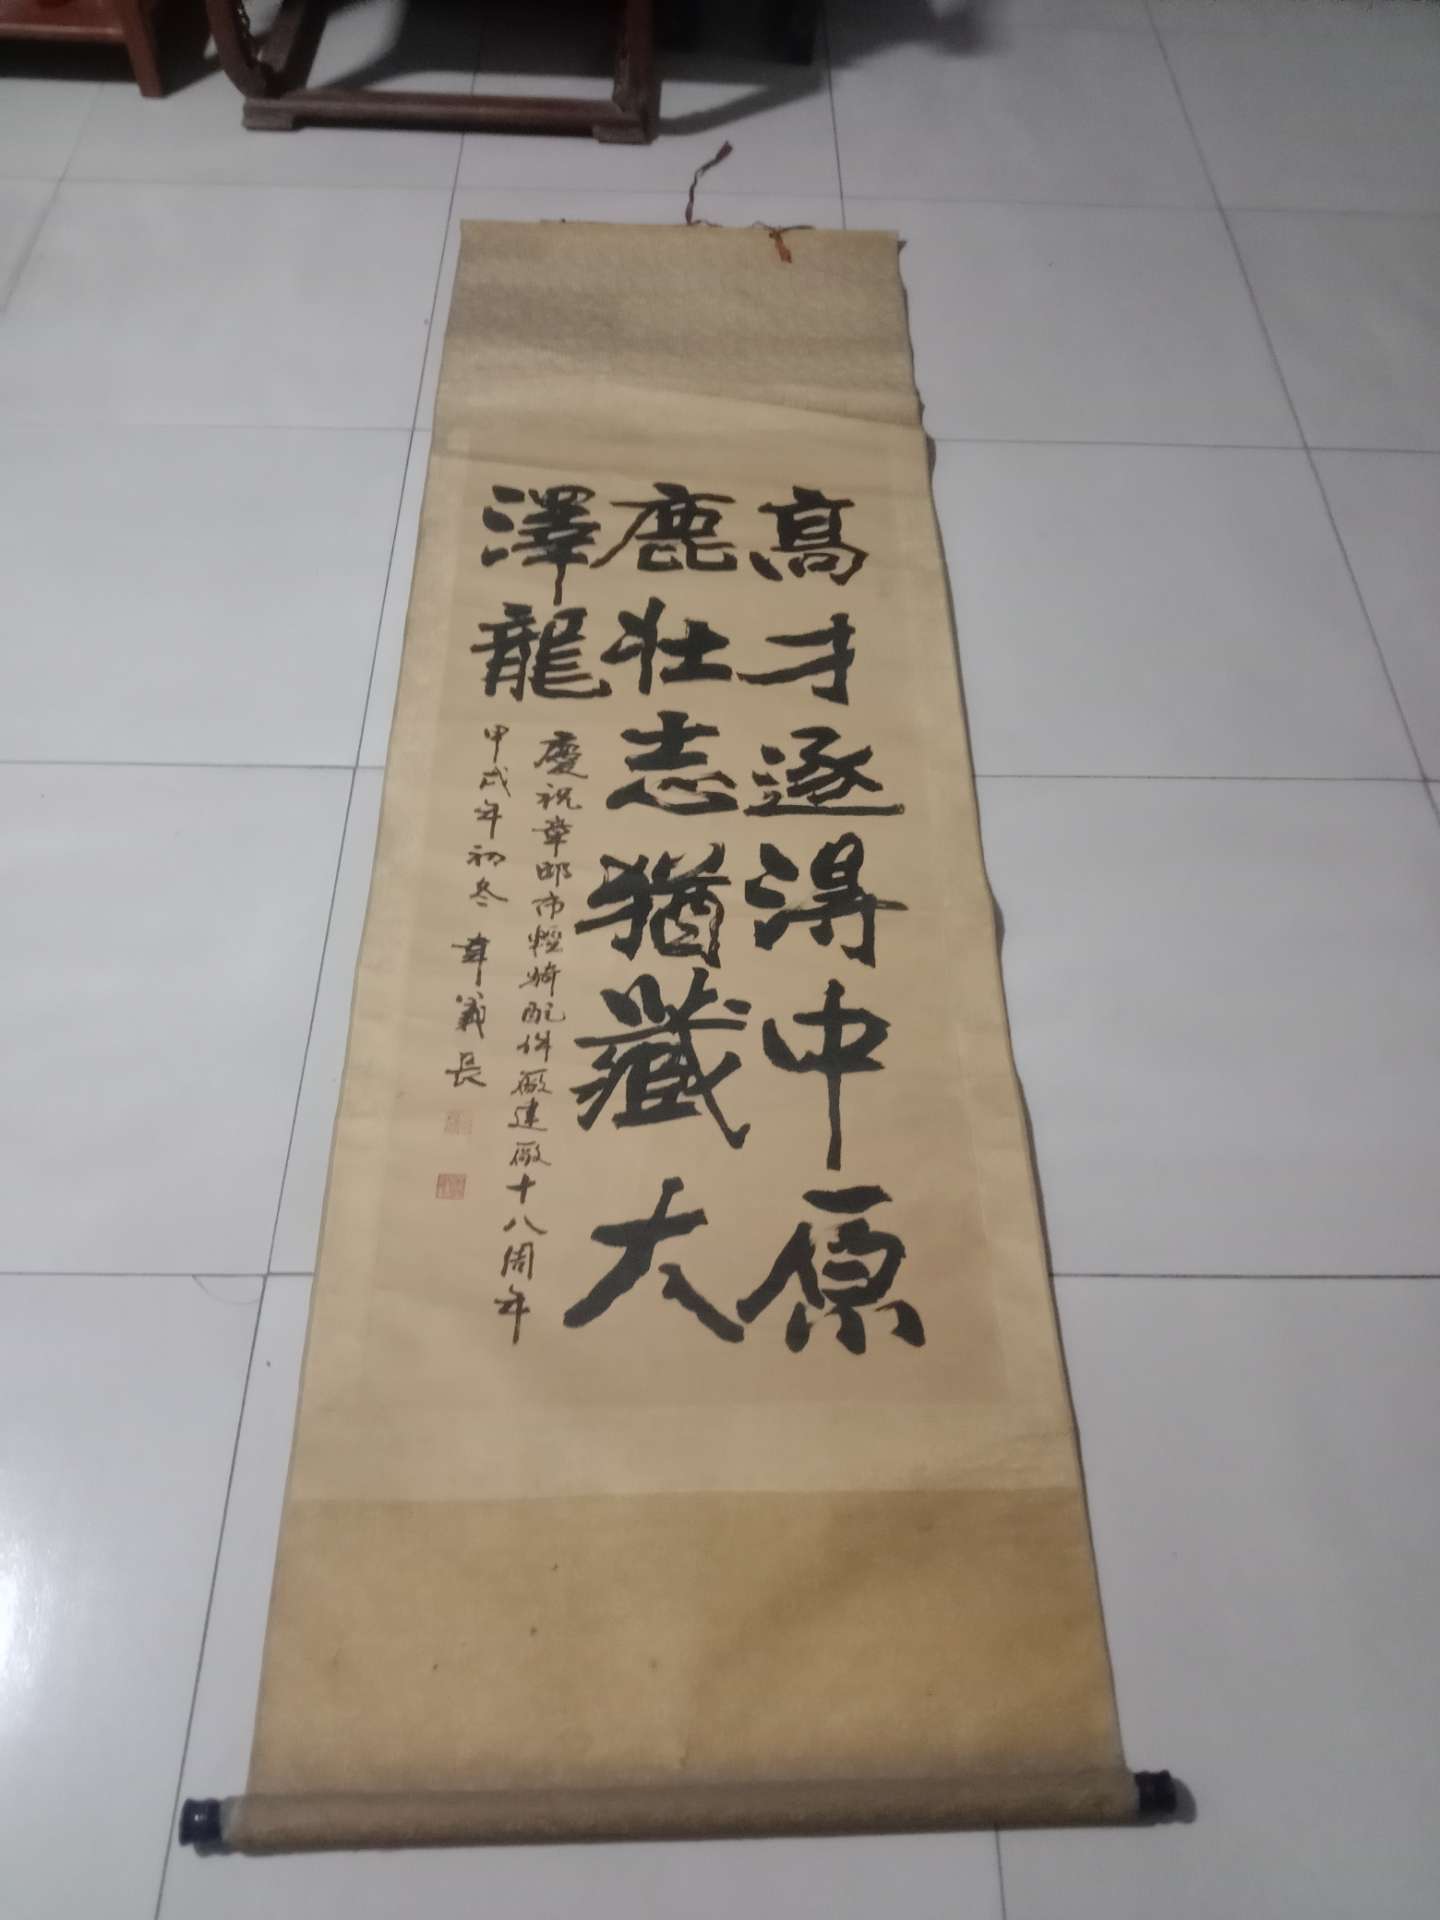 高才逐得中原
鹿壮志猶藏大
澤龍
慶祝章邱市輕騎配件廠建廠十八周年
甲戌年初冬 韋義長